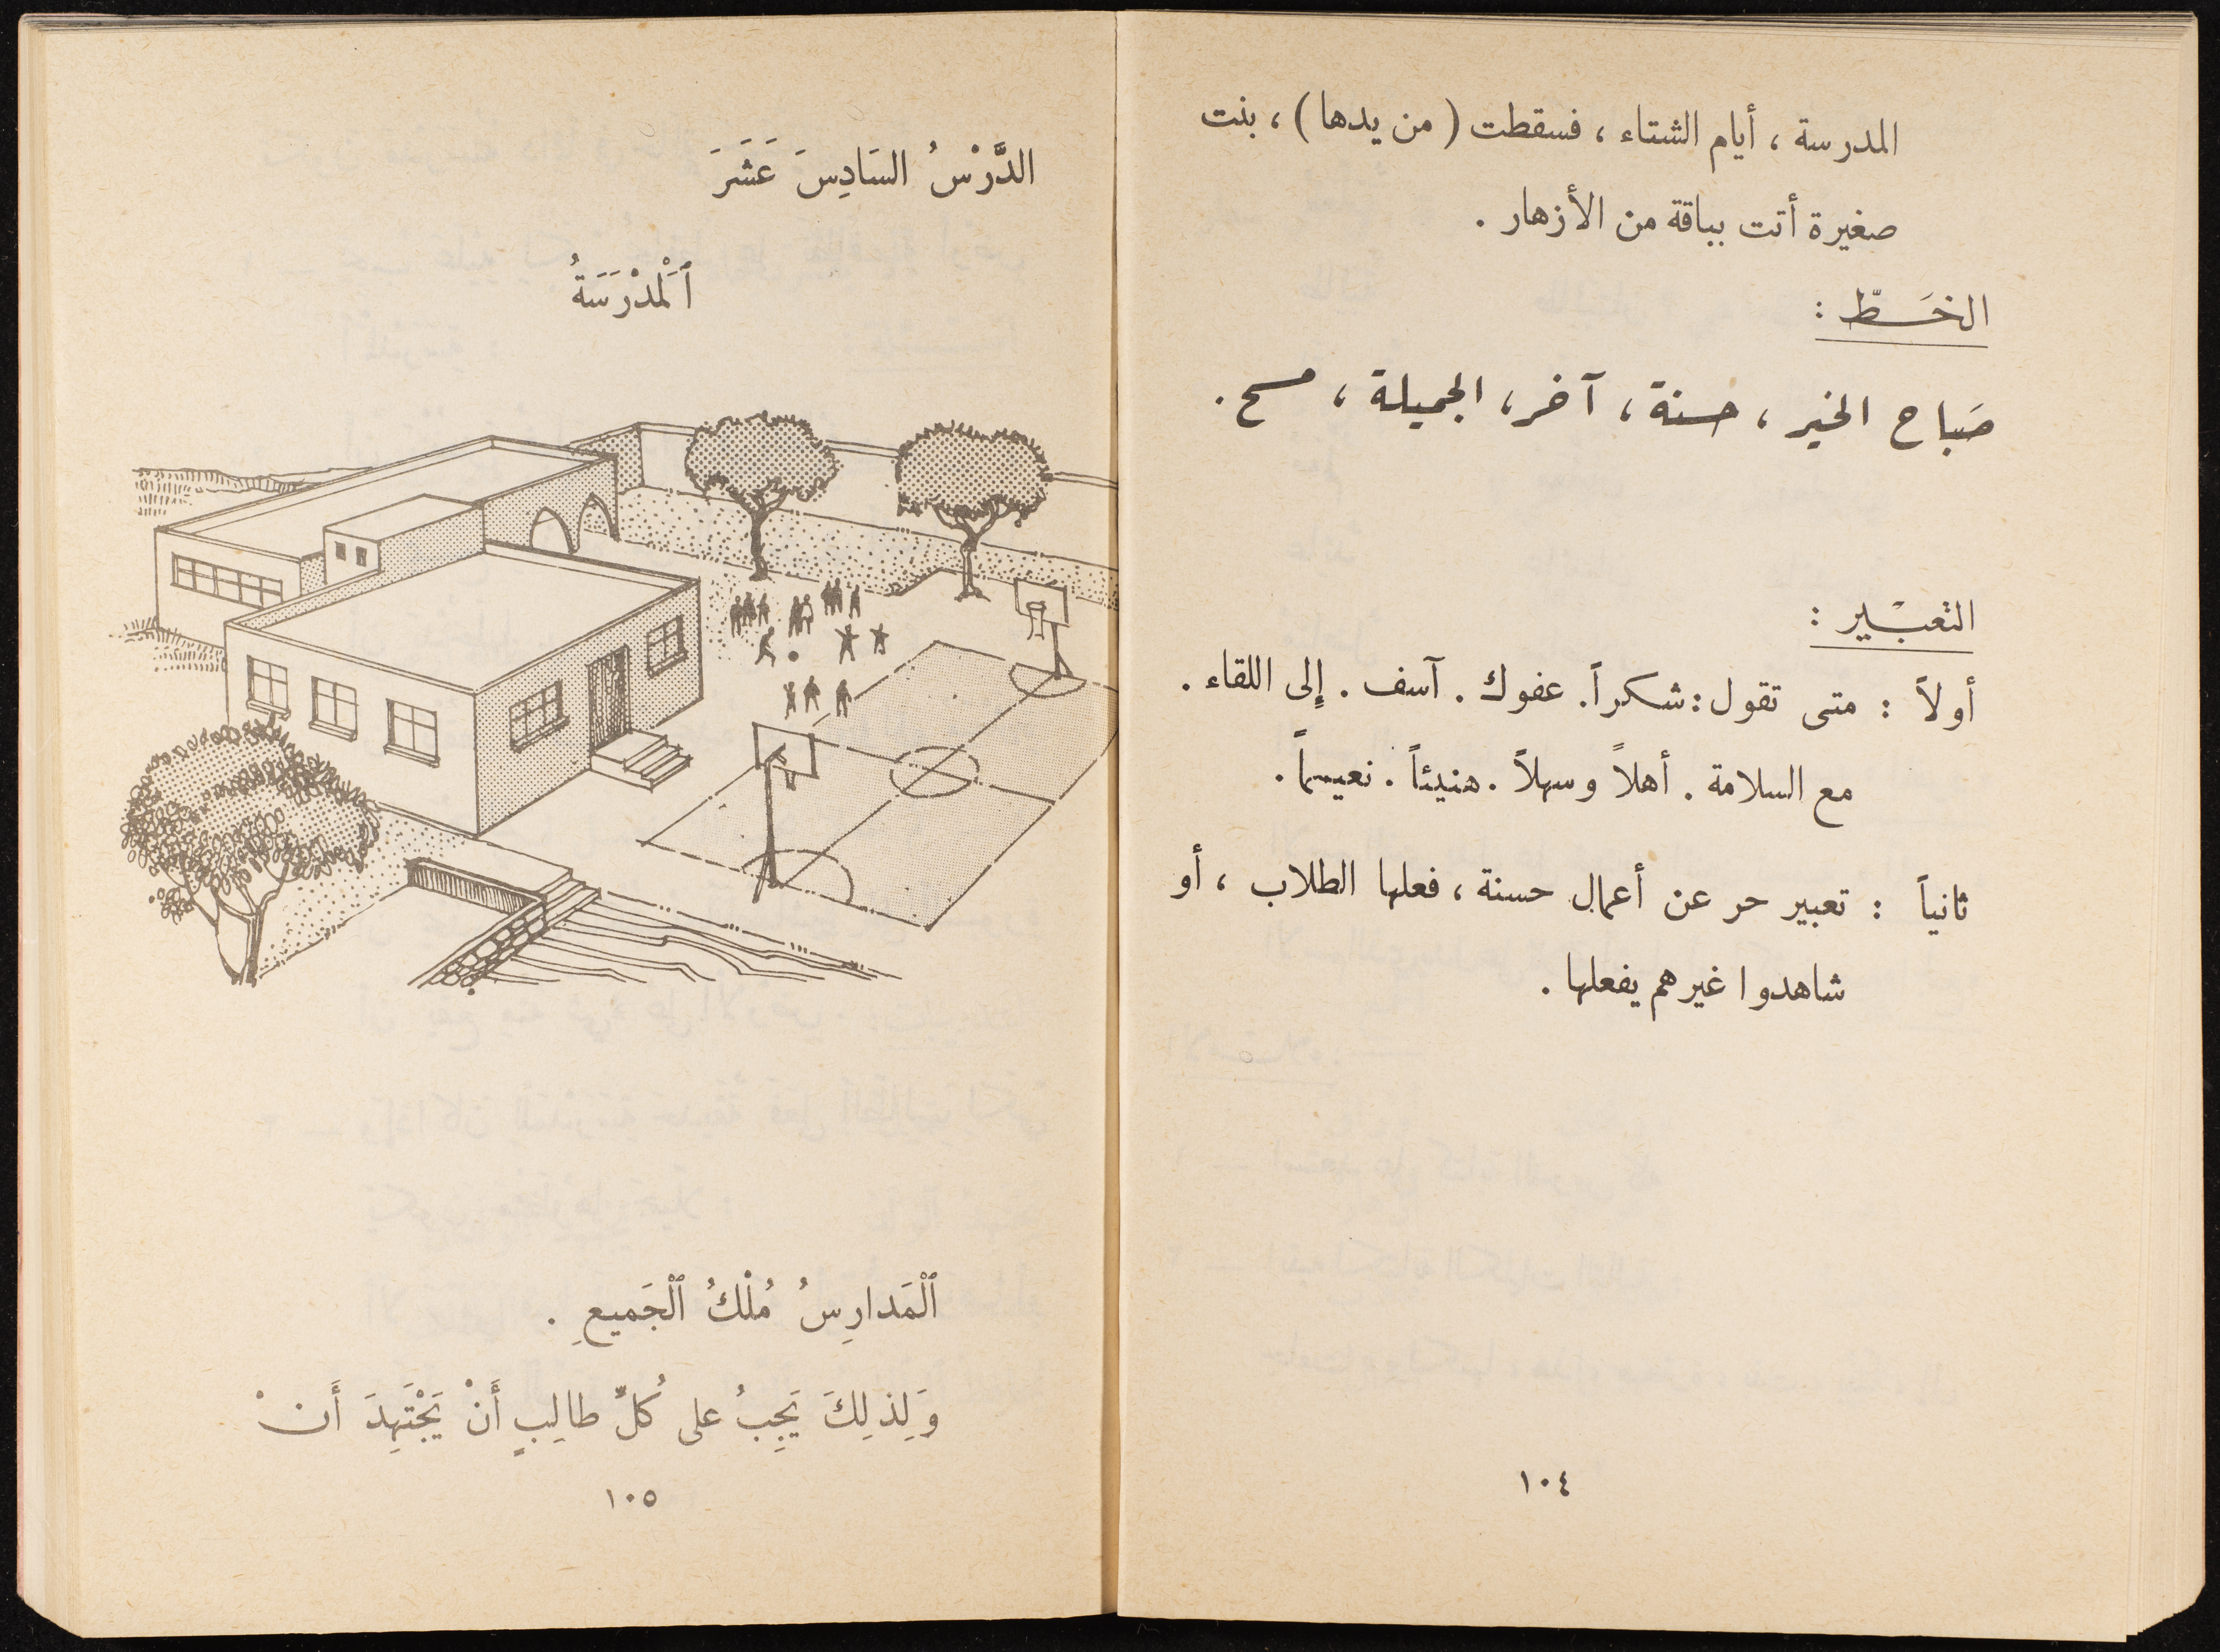 المدرسة ، أيام الشتاء ، فسقطت ( من يدها ) ، بنت
صغيرة أتت بباقة من الأزهار .
الخَـطّ :
صَباح الخير ، حسنة ، آخر ، الجميلة ، مسح .
التعبْـير :
أولاً : متى تقول : شكراً . عفوك . آسف . إلى اللقاء .
مع السلامة . أهلاً وسهلاً . هنيئاً . نعيماً .
ثانياً : تعبير حر عن أعمال حسنة ، فعلها الطلاب ، أو
شاهدوا غيرهم يفعلها .
١٠٤
الدَّرْسُ السَادِسَ عَشَرَ
ٱَلْمَدْرَسَةُ
ٱلْمَدارِسُ مُلْكُ ٱلْجَميعِ .
وَلِذلِكَ يَجِبُ على كُلِّ طالِبٍ أَنْ يَجْتَهِدَ أَنْ
١٠٥